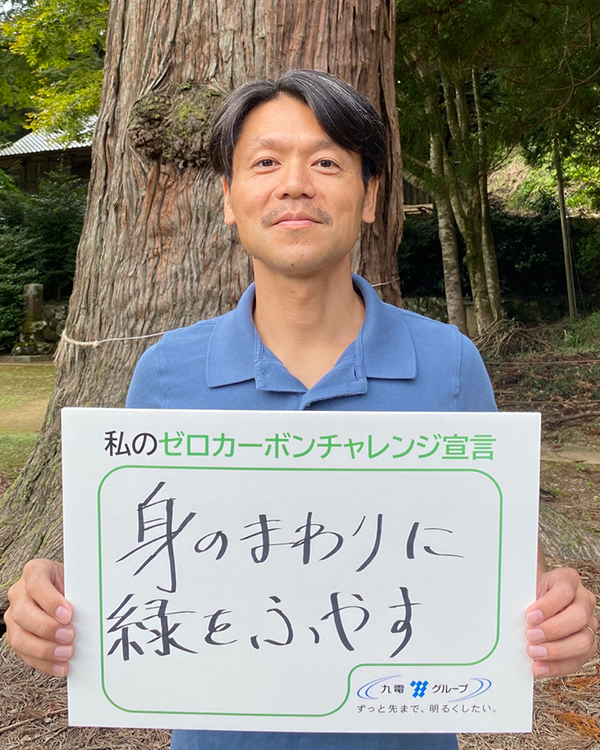 私のゼロカーボンチャレンジ宣言
身のまわりに
緑をふやす
九電グループ
ずっと先まで、明るくしたい。